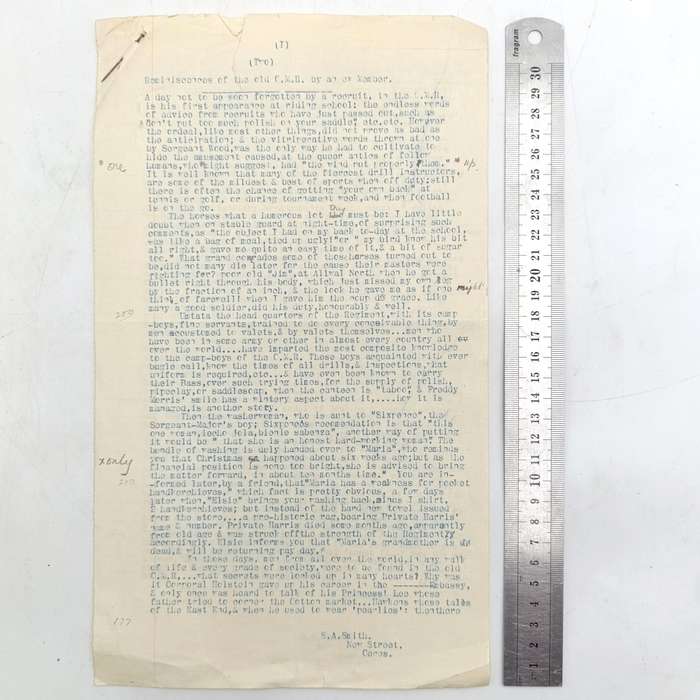 (I)
(Two)
Reminiscences of the old C.M.R. by an ex Member.
A day not to be soon forgotten by a recruit, in the C.M.R.
is his first appearance at riding school: the endless words
of advice from recruits who have just passed out, such as
don't put too much polish on your saddle? etc. etc. However
the ordeal, like most other things, did not prove as bad as
the anticipation; & the words thrown at one
by Sergeant Wood, was the only way he had to cultivate to
hide the amusement caused, at the queer antics of fellow
humans, who might suggest, had "the wind put properly up them."
" one
" up
It is well known that many of the fiercest drill instructors,
are some of the mildest & best of sports when off duty: still
there is often the chance of getting "your own back" at
tennis or golf, or during tournament week, and when football
is on the go.
The horses what a humorous lot they must be: I have little
doubt when on stable guard at night-time, of surprising such
comments, as "the object I had on my back to-day at the school,
was like a bag of meal, tied up ugly! or " my bird knew his bit
all right, & gave me quite an easy time of it, & a bit of sugar
too." That grand comrades some of those horses turned out to
be, did not many die later for the cause their masters were
fighting for? poor old "Jim", at Aliwal North when he got a
bullet right through his body, which just missed my own leg
by the fraction of an inch, & the look he gave me as if one might
think, of farewell when I gave him the coup de grace. Like
many a good soldier, did his duty, honourably & well.
Umtata the head quarters of the Regiment, with its camp
259
-boys, fine servants, trained to do every conceivable thing, by
men accustomed to valets, & by valets themselves...men who
have been in some army or other in almost every country all
over the world....have imparted the most composite knowledge
to the camp-boys of the C.M.R. These boys acquainted with ever
bugle call, know the times of all drills, & inspections, what
uniform is required, etc...& have even been known to carry
their Baas, over such trying times, for the supply of polish,
pipeclay, or saddlesoap, when the canteen is "taboo", & Freddy
Morris' smile has a wintery aspect about it,....how it is
managed, is another story.
Then the washerwoman, who is aunt to "Sixpence", the
Sergeant-Major's boy; Sixpences recomendation is that "this
one woman, icche jola, bicnle sabenza", another way of putting
it would be " that she is an honest hard-working woman? The
bundle of washing is duly handed over to "Maria", who reminds
you that Christmas happened about six weeks ago; but as the
x only
financial position is none too bright, she is advised to bring
the matter forward, in about ten months time." You are in-
-formed later, by a friend, that "Maria has a weakness for pocket
handkerchieves," which fact is pretty obvious, a few days
later when, "Elsie" brings your washing back, minus 1 shirt,
2 handkerchieves; but instead of the hand new towel issued
from the store,...a pre-historic rag, bearing Private Harris'
name & number. Private Harris died some months ago, apparently
from old age & was struck off the strength of the Regiment?
accordingly. Elsie informs you that "Maria's grandmother is
dead, & will be returning pay day."
In those days, men from all over the world, in any walk
of life & every grade of society, were to be found in the old
C.M.R....what secrets were locked up in many hearts? Why was
it Corporal Holstein gave up his career in the -------Embassy,
& only once was heard to talk of his Princess! Lee whose
father tried to corner the Cotton market...Hawkens whose tales
of the East End, & when he used to wear 'pearlies': then there
177
S.A.Smith.
New Street,
Cocos.
fragram
1 2 3 4 5 6 7 8 9 10 11 12 13 14 15 16 17 18 19 20 21 22 23 24 25 26 27 28 29 30